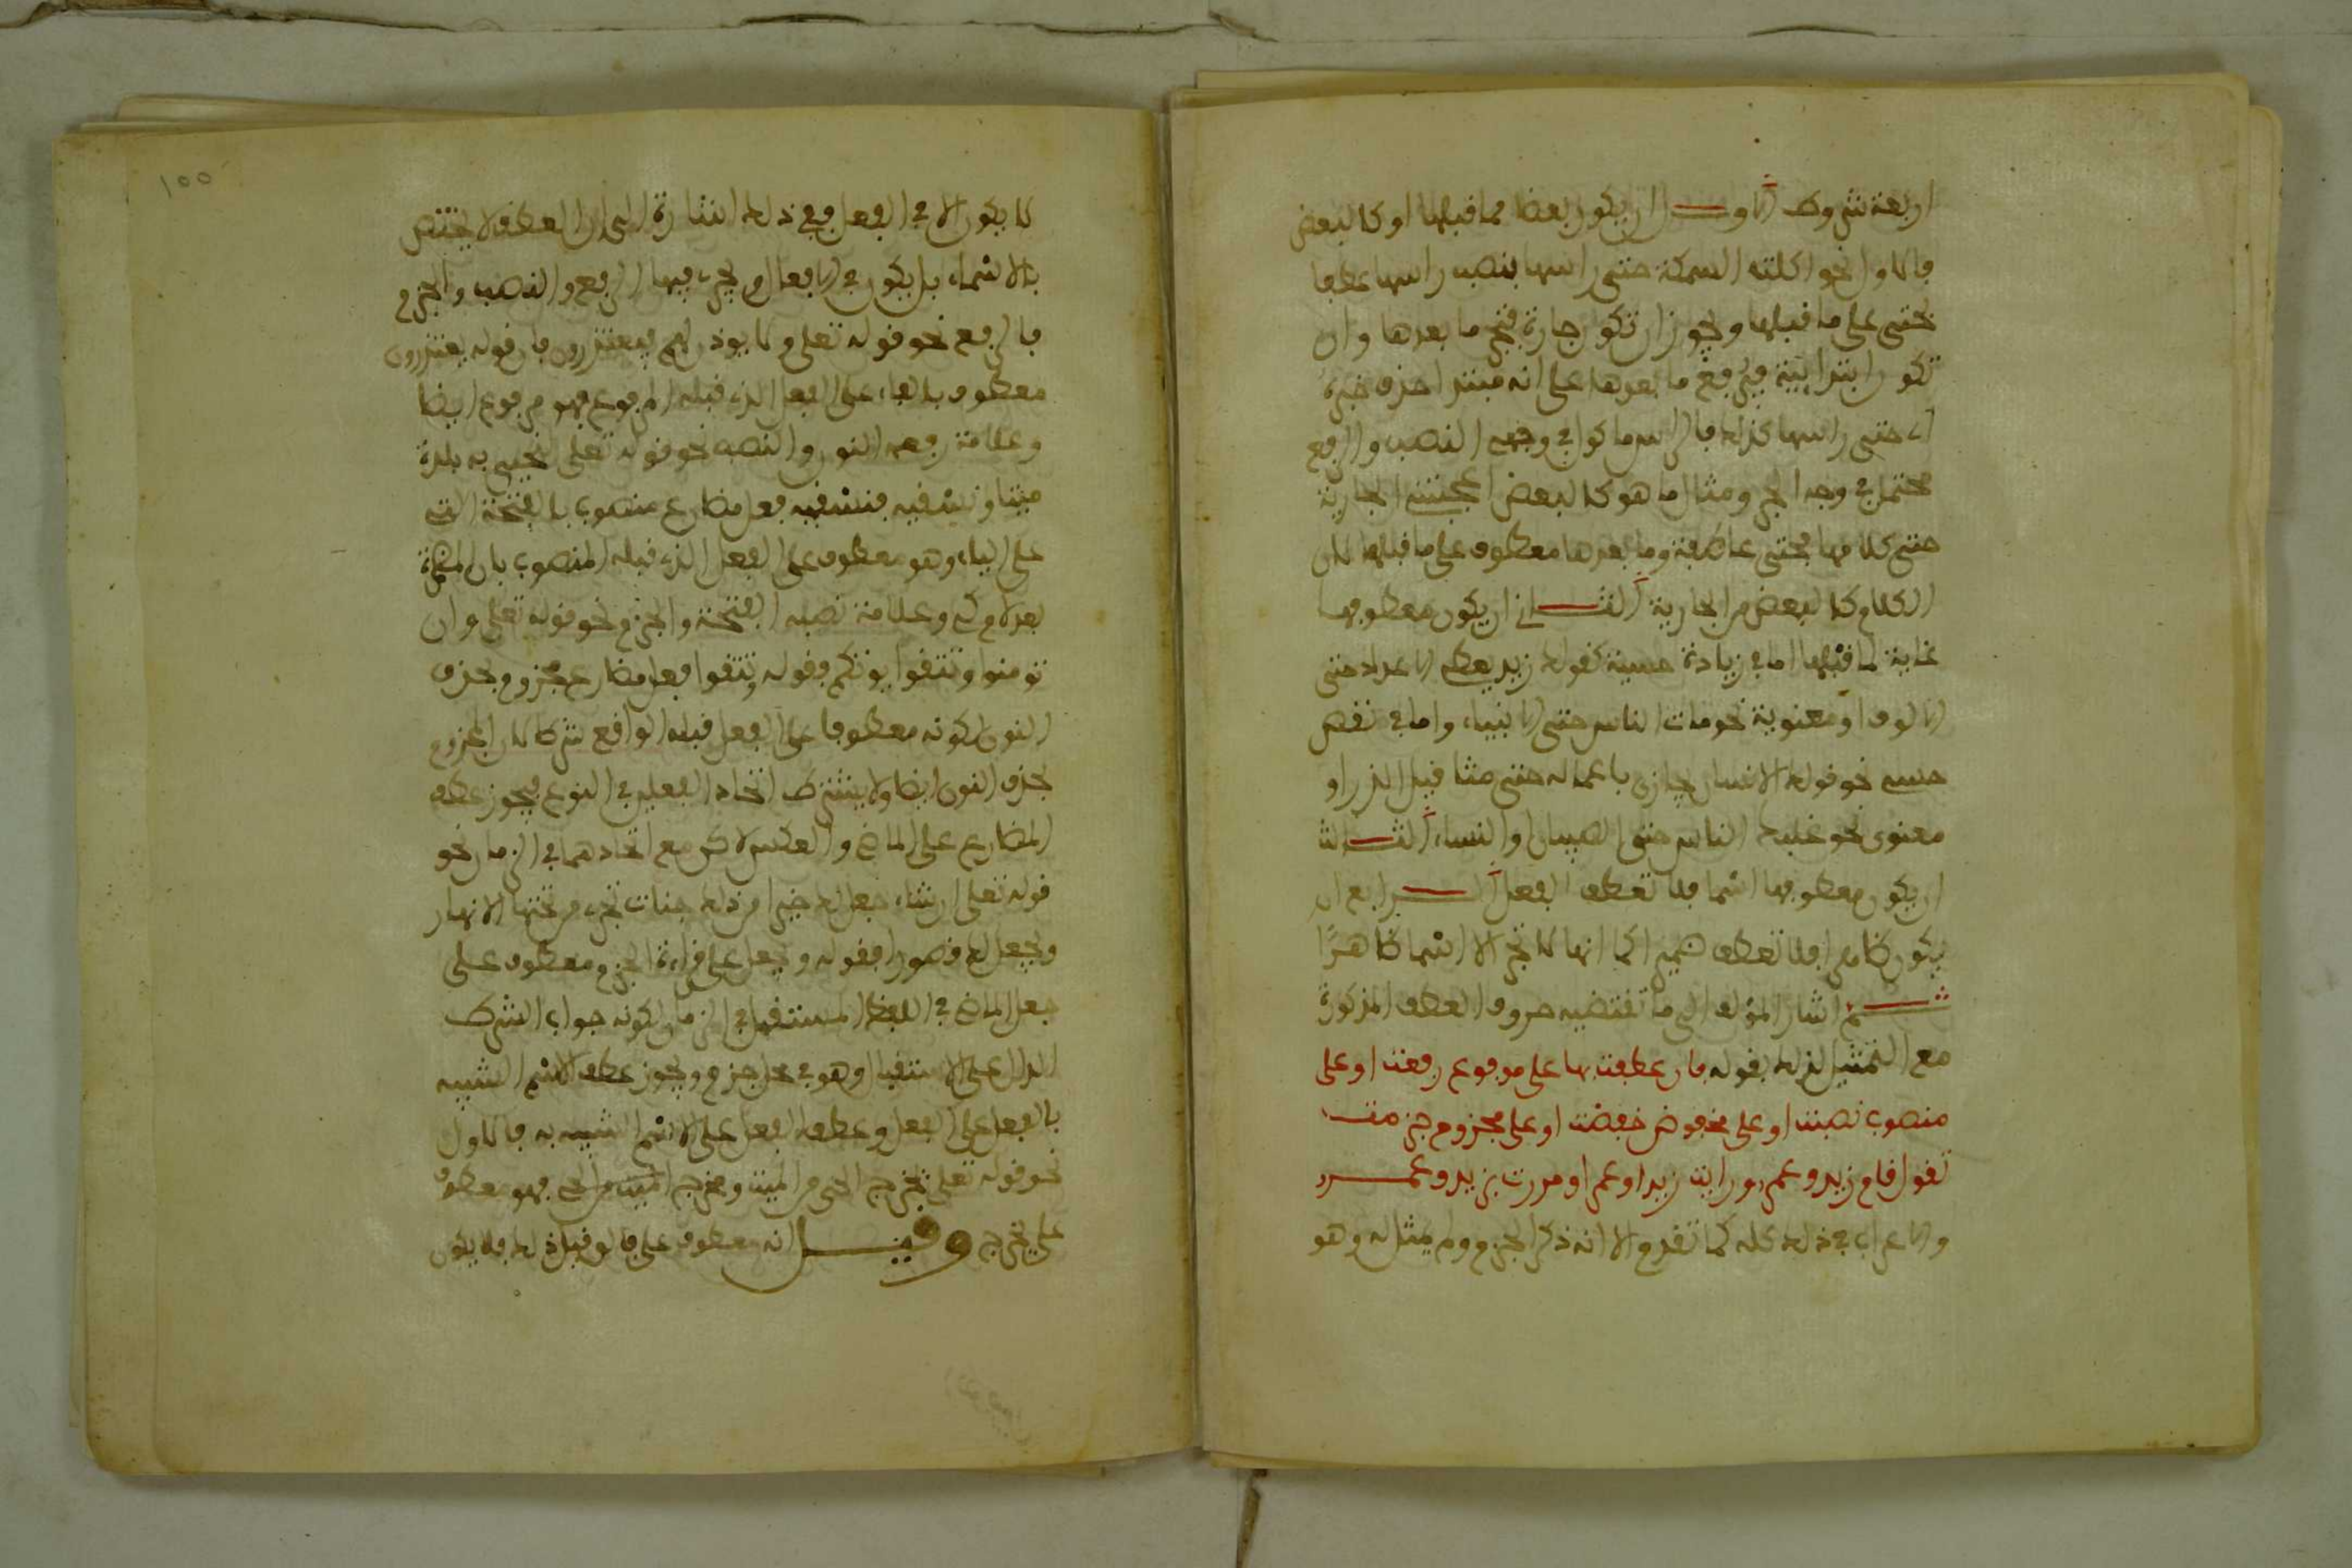 اربعة شروط الاول ان يكون بعضا مما قبلها او كالبعض
فالاول نحو اكلت السمكة حتى راسها بنصب راسها عطفا
بحتى على ما قبلها ويجوز ان تكون جارة فتجر ما بعدها وان
تكون ابتدائية فيرفع ما بعدها على انه مبتدا حذف خبره
اي حتى راسها كذلك فالراس ماكول في وجهي النصب والرفع
محتمل في وجه الجر ومثال ما هو كالبعض اعجبتني الجارية
حتى كلامها فحتى عاطفة وما بعدها معطوف على ما قبلها لان
الكلام كالبعض من الجارية الثاني ان يكون معطوفها
غاية لما قبلها اما في زيادة حسية كقولك زيد يعطي الاعداد حتى
الالوف او معنوية نحو مات الناس حتى الانبياء واما في نقص
حسي نحو قولك الانسان يجازى باعماله حتى مثقال الذر او
معنوى نحو غلبك الناس حتى الصبيان والنساء الثالث
ان يكون معطوفها اسما فلا تعطف الفعل الرابع ان
يكون ظاهرا فلا تعطف ضميرا كما انها لا تجر الا اسما ظاهرًا
ثم اشار المؤلف الى ما تقتضيه حروف العطف المذكورة
مع التمثيل لذلك بقوله فان عطفت بها على مرفوع رفعت او على
منصوب نصبت او على مخفوض خفضت او على مجزوم جزمت
تقول قام زيد وعمرو ورايت زيدا وعمرا ومررت بزيد وعمرو
والاعراب في ذلك كله كما تقدم الا انه ذكر الجزم ولم يمثل له وهو
١٥٥
لا يكون الا في الفعل وفي ذلك اشارة الى ان العطف لا يختص
بالاسماء بل يكون في الافعال ويجري فيها الرفع والنصب والجزم
فالرفع نحو قوله تعلى ولا يوذن لهم فيعتذرون فان قوله يعتذرون
معطوف بالفاء على الفعل الذي قبله المرفوع فهو مرفوع ايضا
وعلامة رفعه النون والنصب نحو قوله تعلى لنحيي به بلدة
ميتا ونسقيه فنسقيه فعل مضارع منصوب بالفتحة التي
على الياء وهو معطوف على الفعل الذي قبله المنصوب بان المضمرة
بعد لام كي وعلامة نصبه الفتحة والجزم نحو قوله تعلى وان
تومنوا وتتقوا يوتكم فقوله وتتقوا فعل مضارع مجزوم بحذف
النون لكونه معطوفا على الفعل قبله الواقع شرطا لان المجزوم
بحذف النون ايضا ولا يشترط اتحاد الفعلين في النوع فيجوز عطف
المضارع على الماضي والعكس لاكن مع اتحادهما في الزمان نحو
قوله تعلى ان شاء جعل لك خيرا من ذلك جنات تجري من تحتها الانهار
ويجعل لك قصورا فقوله ويجعل على قراءة الجزم معطوف على
جعل الماضي في اللفظ المستقبل في الزمان لكونه جواب الشرط
الدال على الاستقبال وهو في محل جزم ويجوز عطف الاسم الشبيه
بالفعل على الفعل وعطف الفعل على الاسم الشبيه به فالاول
نحو قوله تعلى يخرج الحي من الميت ومخرج الميت من الحي فهو معطوف
على يخرج وقيل انه معطوف على فالق قبل ذلك فلا يكون